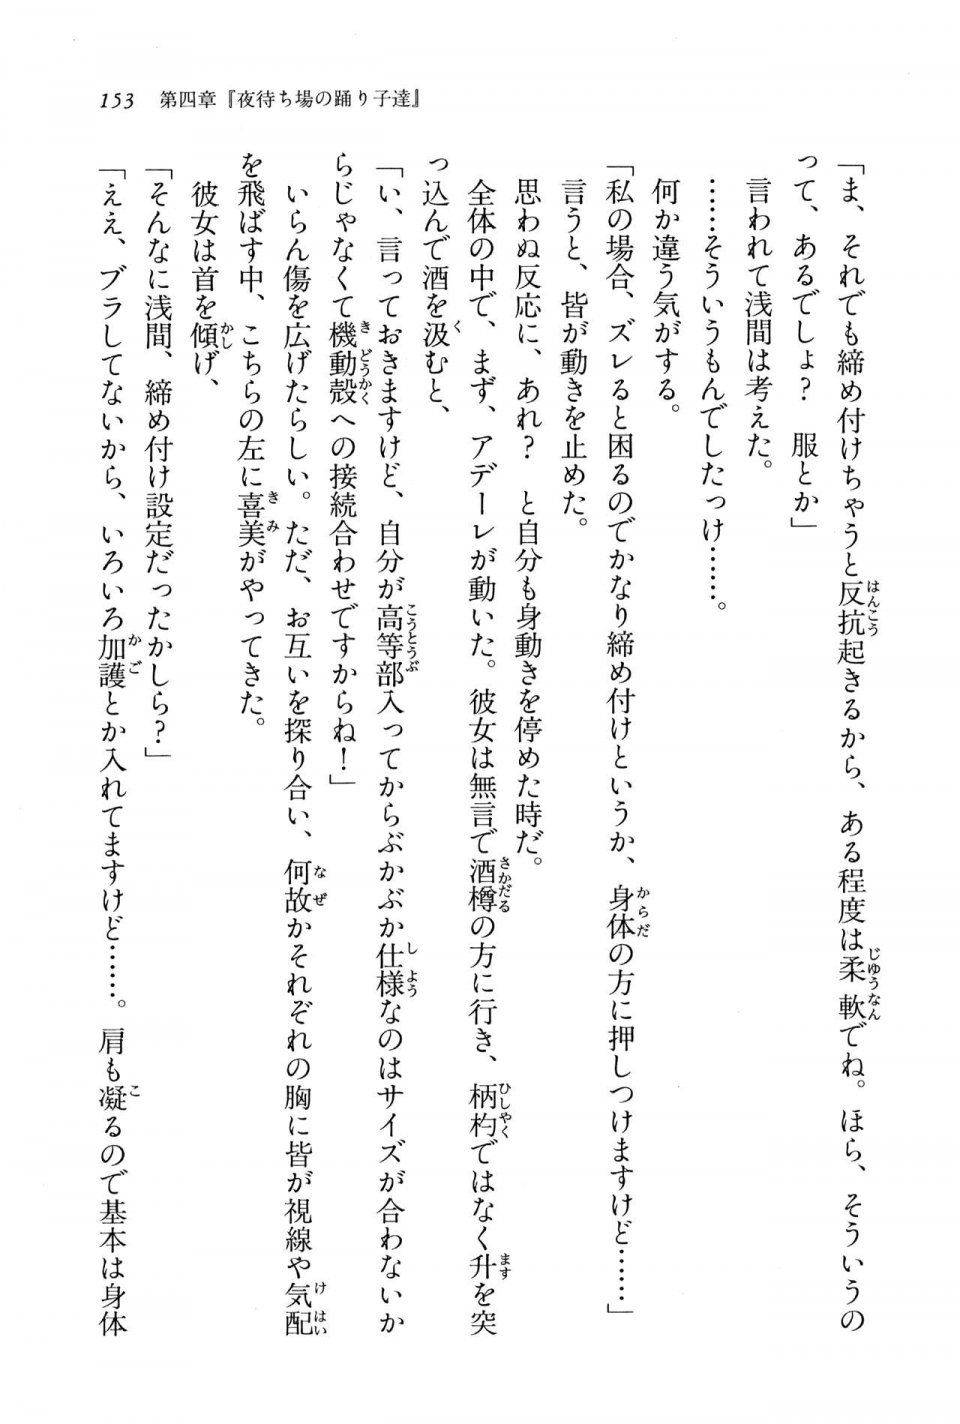 153　第四章『夜待ち場の踊り子達』
「ま、それでも締め付けちゃうと反抗起きるから、ある程度は柔軟でね。ほら、そういうの
って、あるでしょ？　服とか」
言われて浅間は考えた。
……そういうもんでしたっけ……。
何か違う気がする。
「私の場合、ズレると困るのでかなり締め付けというか、身体の方に押しつけますけど……」
言うと、皆が動きを止めた。
思わぬ反応に、あれ？　と自分も身動きを停めた時だ。
全体の中で、まず、アデーレが動いた。彼女は無言で酒樽の方に行き、柄杓ではなく升を突
っ込んで酒を汲むと、
「い、言っておきますけど、自分が高等部入ってからぶかぶか仕様なのはサイズが合わないか
らじゃなくて機動殻への接続合わせですからね！」
いらん傷を広げたらしい。ただ、お互いを探り合い、何故かそれぞれの胸に皆が視線や気配
を飛ばす中、こちらの左に喜美がやってきた。
彼女は首を傾げ、
「そんなに浅間、締め付け設定だったかしら？」
「ええ、ブラしてないから、いろいろ加護とか入れてますけど……。肩も凝るので基本は身体